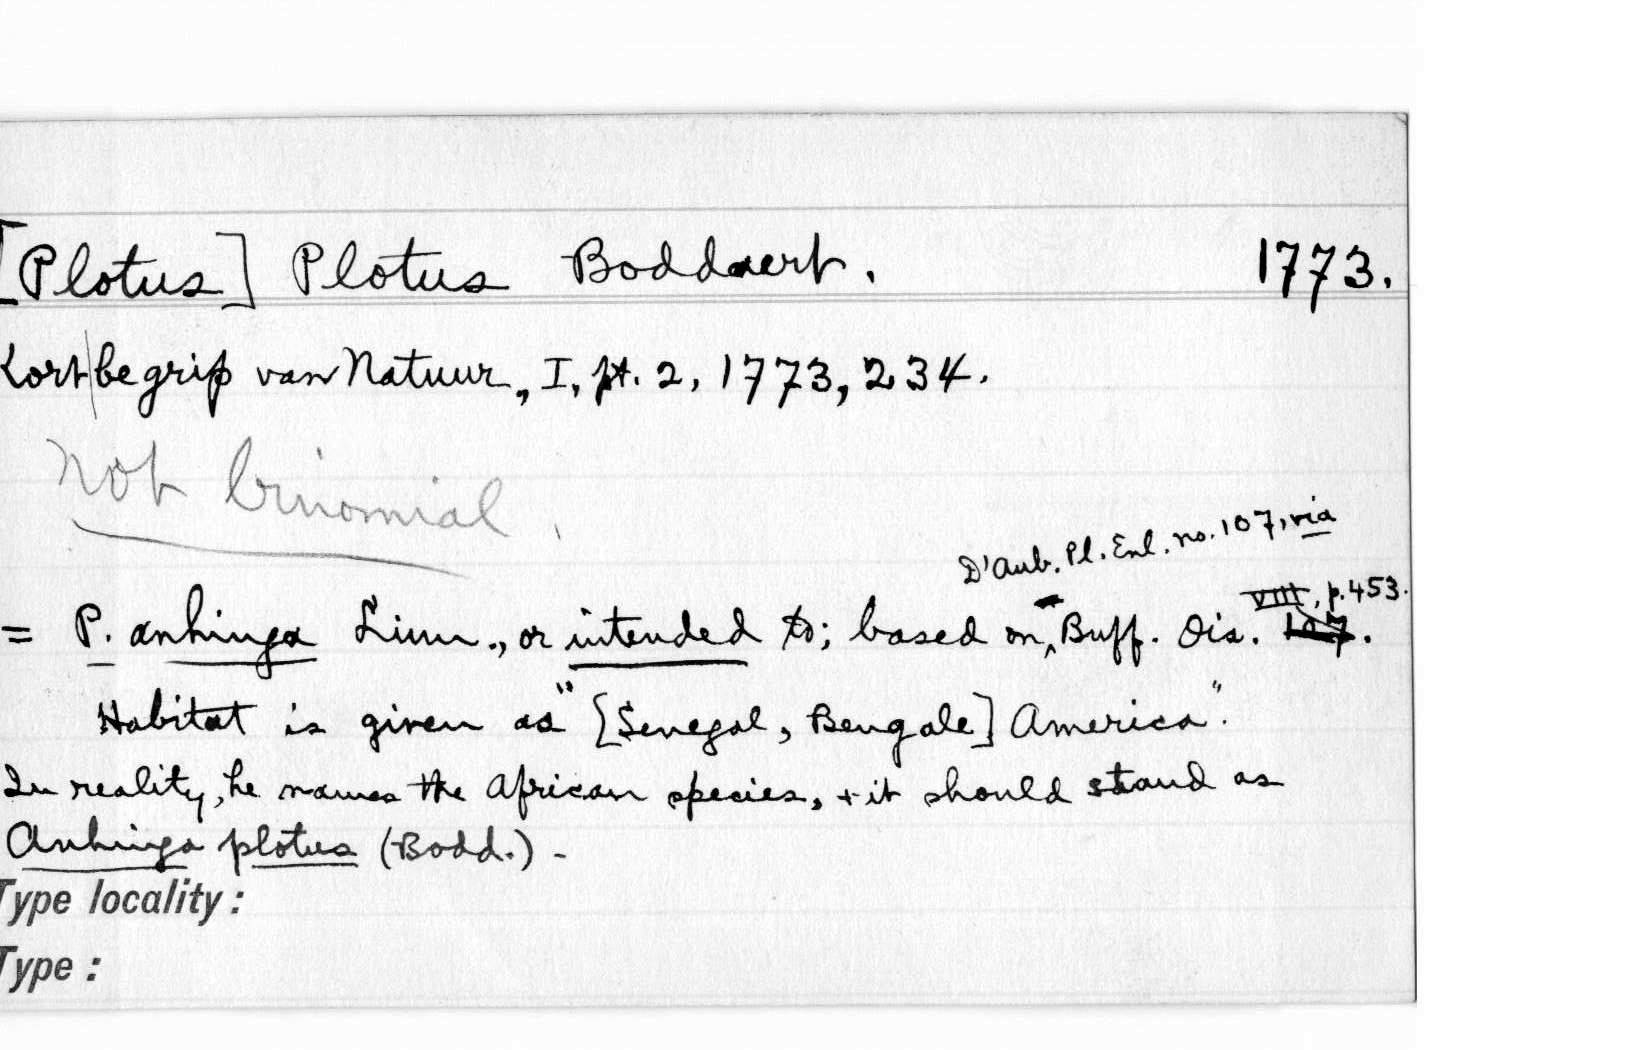 [Plotus] Plotus Boddaert. 1773.
Kort begrip van Natuur, I, pt. 2, 1773, 234.
Not binomial.
D'Aub. Pl. Enl. no. 107, via
VIII, p. 453.
= P. anhinga Linn., or intended to; based on ^ Buff. Ois. 107.
Habitat is given as "[Senegal, Bengale] America".
In reality, he names the African species, + it should stand as
Anhinga plotus (Bodd.) -
Type locality:
Type: